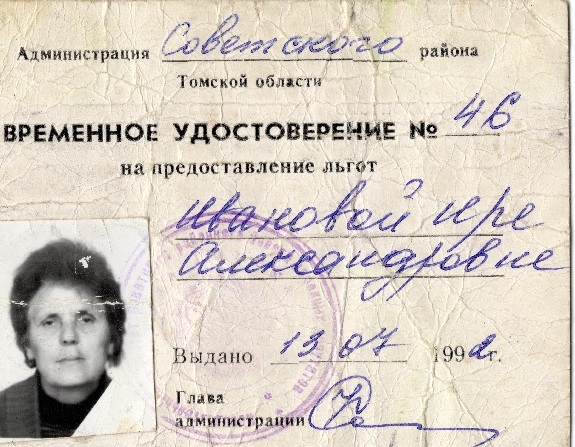 Администрация Советского района
Томской области
ВРЕМЕННОЕ УДОСТОВЕРЕНИЕ № 46
на предоставление льгот
Ивановой Ире
Александровне
Выдано 13 07 1992г.
Глава
администрации